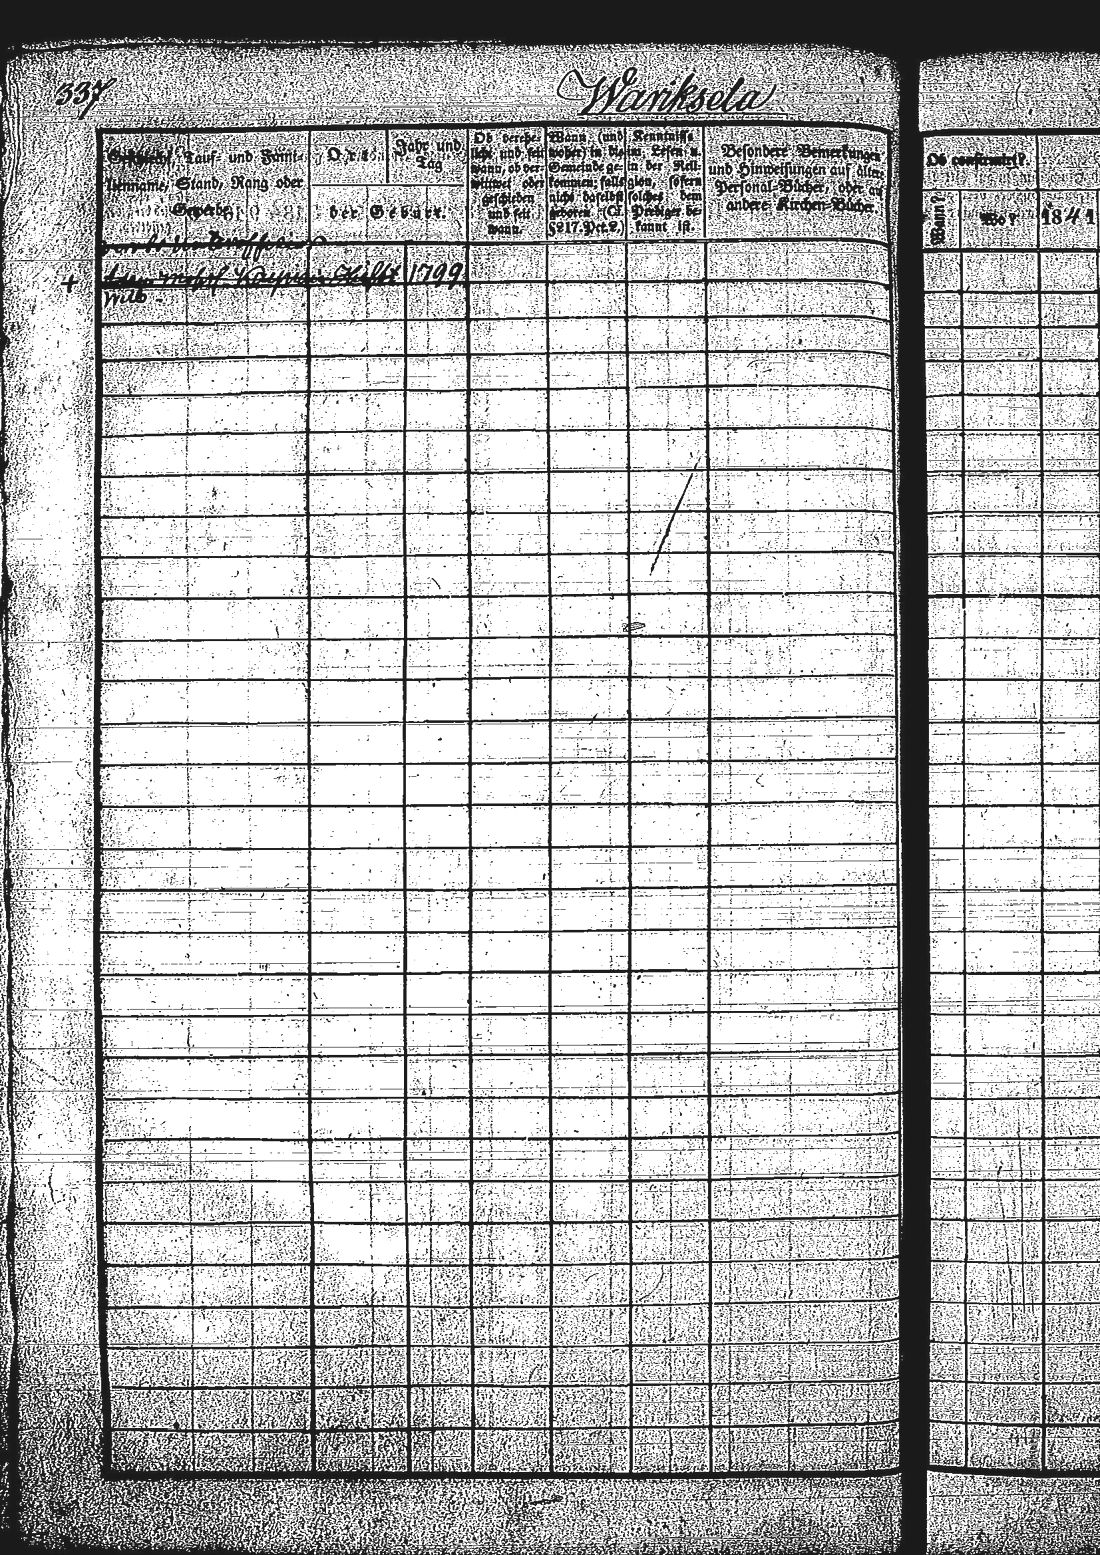 337
Wariksela
Geschlecht, Tauf- und Fami-
lienname, Stand, Rang oder
Gewerbe.
Ort
Jahr und
Tag
der Geburt.
Ob verehe-
licht und seit
wann, ob ver-
wittwet oder
geschieden
und seit
wann.
Wann (und
woher) in die
Gemeinde ge-
kommen; falls
nicht daselbst
geboren (Cf.
§217. Pct. 2.)
Kenntnisse
im Lesen u.
in der Reli-
gion, sofern
solches dem
Prediger be-
kannt ist.
Besondere Bemerkungen
und Hinweisungen auf ältere
Personal-Bücher, oder auf
andere Kirchen-Bücher.
+
1799.
Wittb.
Ob confirmirt?
Wann?
Wo?
1841